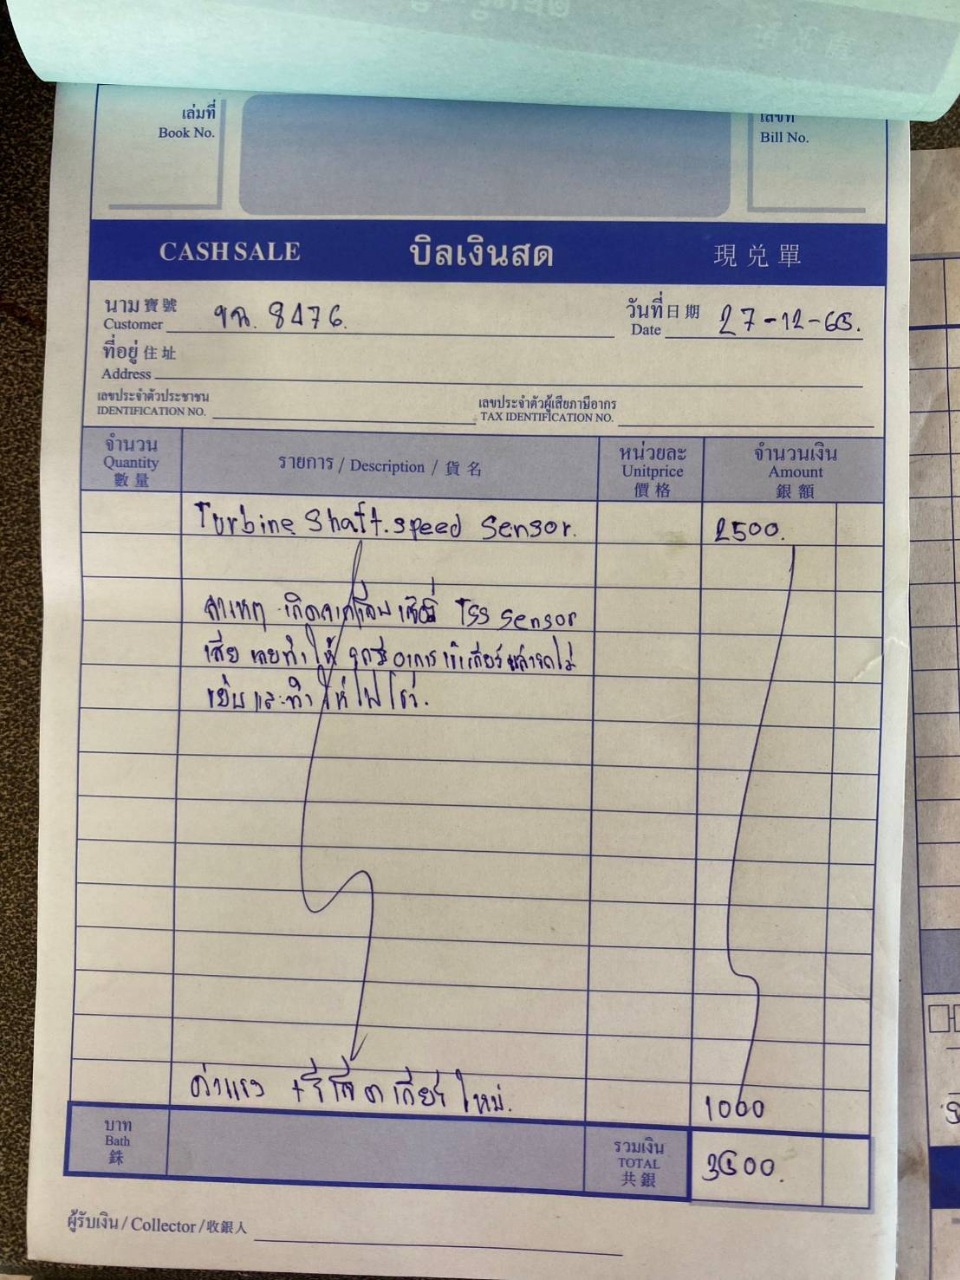 เล่มที่
Book No.
เลขที่
Bill No.
CASH SALE บิลเงินสด 現兑單
นาม 寶號
Customer ฆฉ. 8476.
วันที่ 日期
Date 27-12-65.
ที่อยู่ 住址
Address
เลขประจำตัวประชาชน
IDENTIFICATION NO.
เลขประจำตัวผู้เสียภาษีอากร
TAX IDENTIFICATION NO.
จำนวน
Quantity
數量
รายการ / Description / 貨名
หน่วยละ
Unitprice
價格
จำนวนเงิน
Amount
銀額
Turbine Shaft.speed Sensor. 2500.
สาเหตุ TSS Sensor
เสีย เลยทำให้ อาการ เข้าเกียร์แล้วรถไม่
และทำให้ไฟโชว์.
ค่าแรง + รีเซ็ตเกียร์ใหม่. 1000
บาท
Bath
銖
รวมเงิน
TOTAL
共銀
3500.
ผู้รับเงิน / Collector / 收銀人